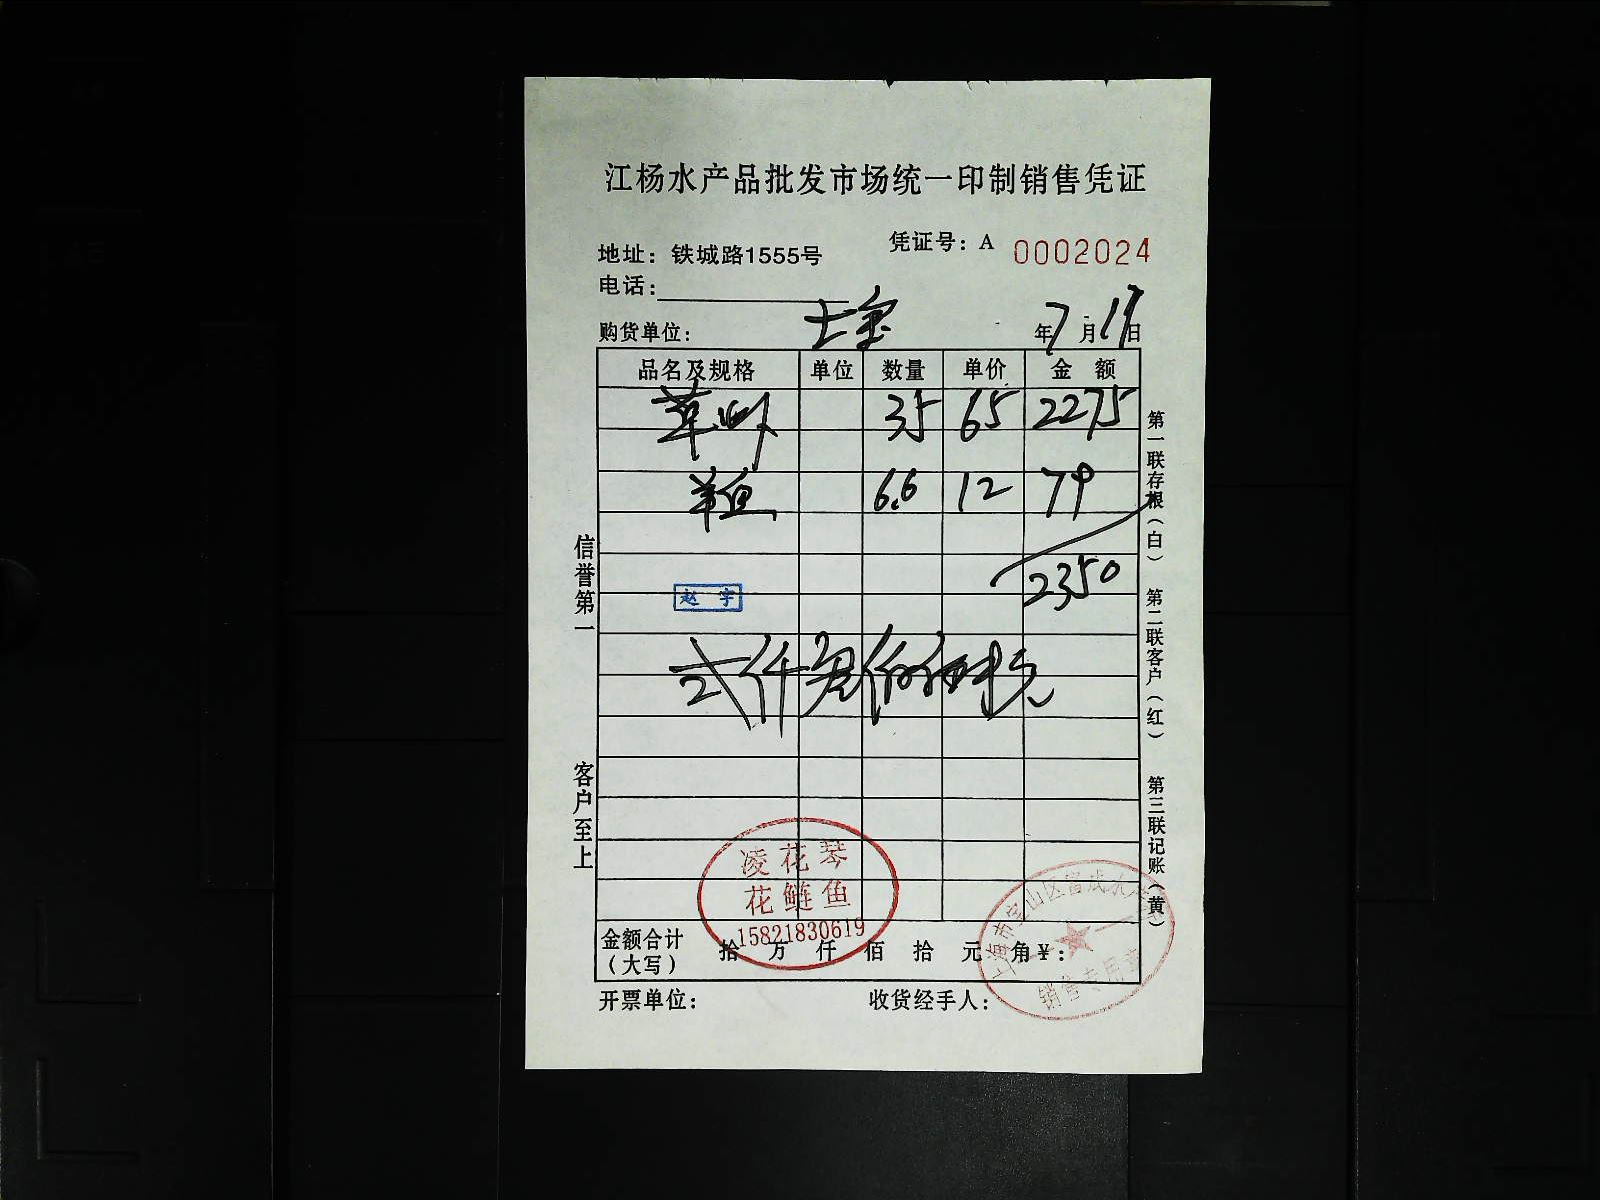 江杨水产品批发市场统一印制销售凭证
地址：铁城路1555号 凭证号：A 0002024
电话：
购货单位： 年7月19日
品名及规格 单位 数量 单价 金额
草 35 65 2275
6.6 12 79
2350
赵宇
弍仟叁佰伍拾元
凌花琴
花鲢鱼
15821830619
金额合计（大写） 拾 万 仟 佰 拾 元 角 ¥：
开票单位： 收货经手人：
信誉第一 客户至上
第一联存根（白） 第二联客户（红） 第三联记账（黄）
上海市宝山区富成水产
销售专用章